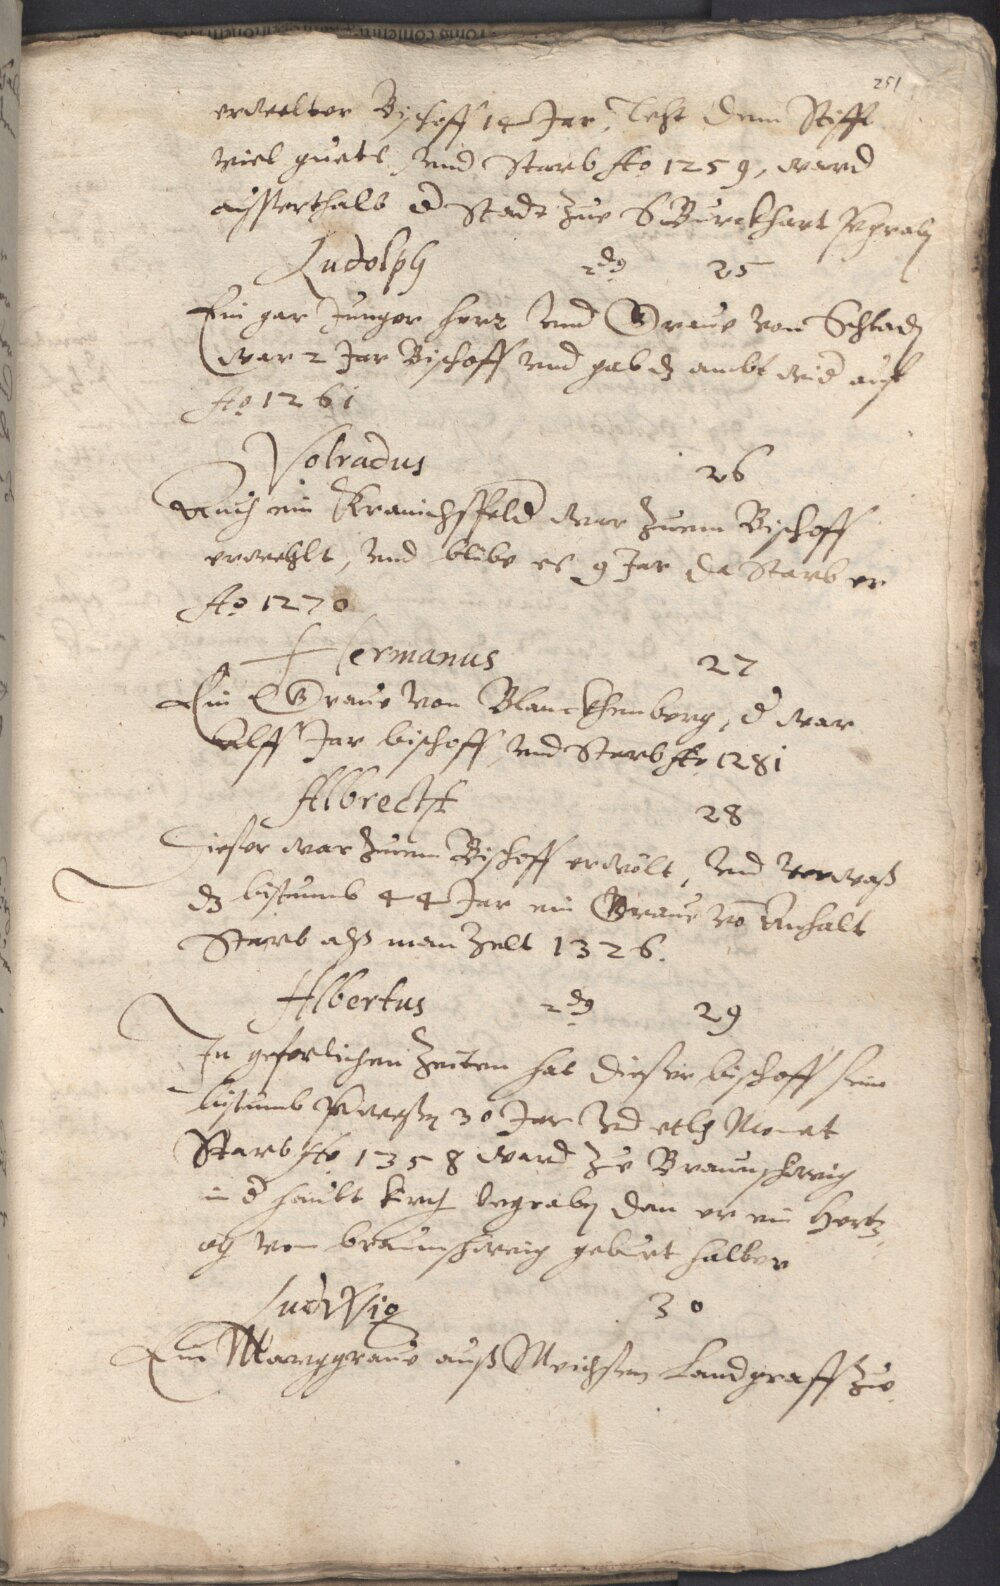 251
erwelter Bischoff 14 Jar, lest dem Stifft
viel guets, vnd Starb Ao 1259, ward
ausserthalb d Stadt Zue S Burckhart
Ludolph 2dg 25
Ein gar Junger herr vnd Graue von Schlad
war 2 Jar Bischoff vnd gab dz ambt wid auf
Ao 1261
Volradus 26
Auch ein Kranichsfeld war Zuem Bischoff
erwehlt, vnd blibe es 9 Jar da Starb er
Ao 1270
Hermanus 27
Ein Graue von Blanckhenberg, d war
Alff Jar bischoff vnd Starb Ao 1281
Albrecht 28
Dieser war Zuem Bischoff erwölt, vnd
dz bistumb 44 Jar ein Graue vo Anhalt
Starb alß man Zelt 1326.
Albertus 2dg 29
In geferlichen Zeiten hat dießer bischoff sein
bistumb 30 Jar vnd etlch Monat
Starb Ao 1358 ward Zue Braunschweig
in d haubt kirch begrabn dan er ein Hertz
og von braunschweig geburt halber
Ludwig 30
Ein Marggraue auß Meichssen Landgraff Zue